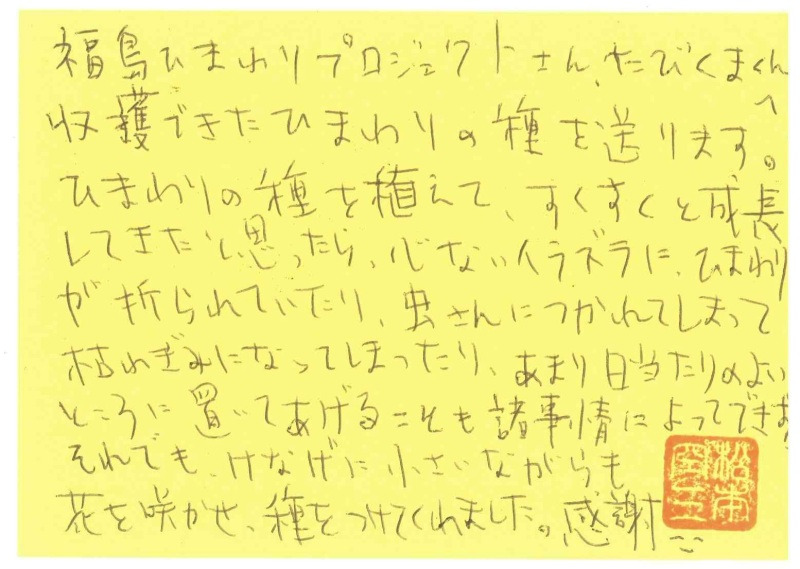 福島ひまわりプロジェクトさん、たびくまくん
へ
収穫できたひまわりの種を送ります。
ひまわりの種を植えて、すくすくと成長
してきたと思ったら、心ないイタズラに、ひまわり
が折られていたり、虫さんにつかれてしまって
枯れぎみになってしまったり、あまり日当たりのよい
ところに置いてあげることも諸事情によってできず
それでも、けなげに小さいながらも
花を咲かせ、種をつけてくれました。感謝